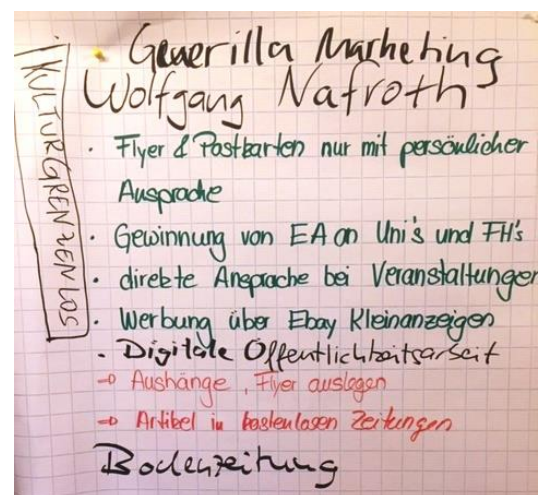 KULTURGRENZENLOS
· Guerilla Marketing
Wolfgang Nafroth
· Flyer & Postkarten nur mit persönlicher
Ansprache
· Gewinnung von EA an Uni's und FH's
· direkte Ansprache bei Veranstaltungen
· Werbung über Ebay Kleinanzeigen
· Digitale Öffentlichkeitsarbeit
→ Aushänge, Flyer auslegen
→ Artikel in kostenlosen Zeitungen
Bodenzeitung